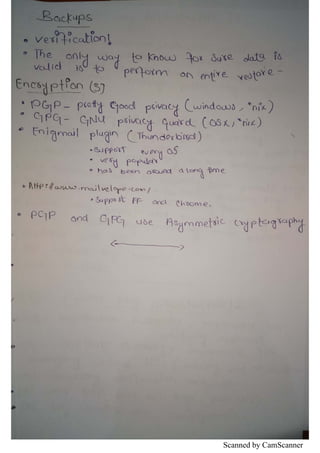 Backups
• verification!
• The only way to know for sure data is
valid is to perform an entire restore -
Encryption (s)
• PGP - pretty good privacy (windows, *nix)
• GPG - GNU privacy guard (OSX, *nix)
• Enigmail plugin (Thunderbird)
• support every OS
• very popular
• has been around a long time
• support FF and chrome.
• PGP and GPG use Asymmetric cryptography
Scanned by CamScanner